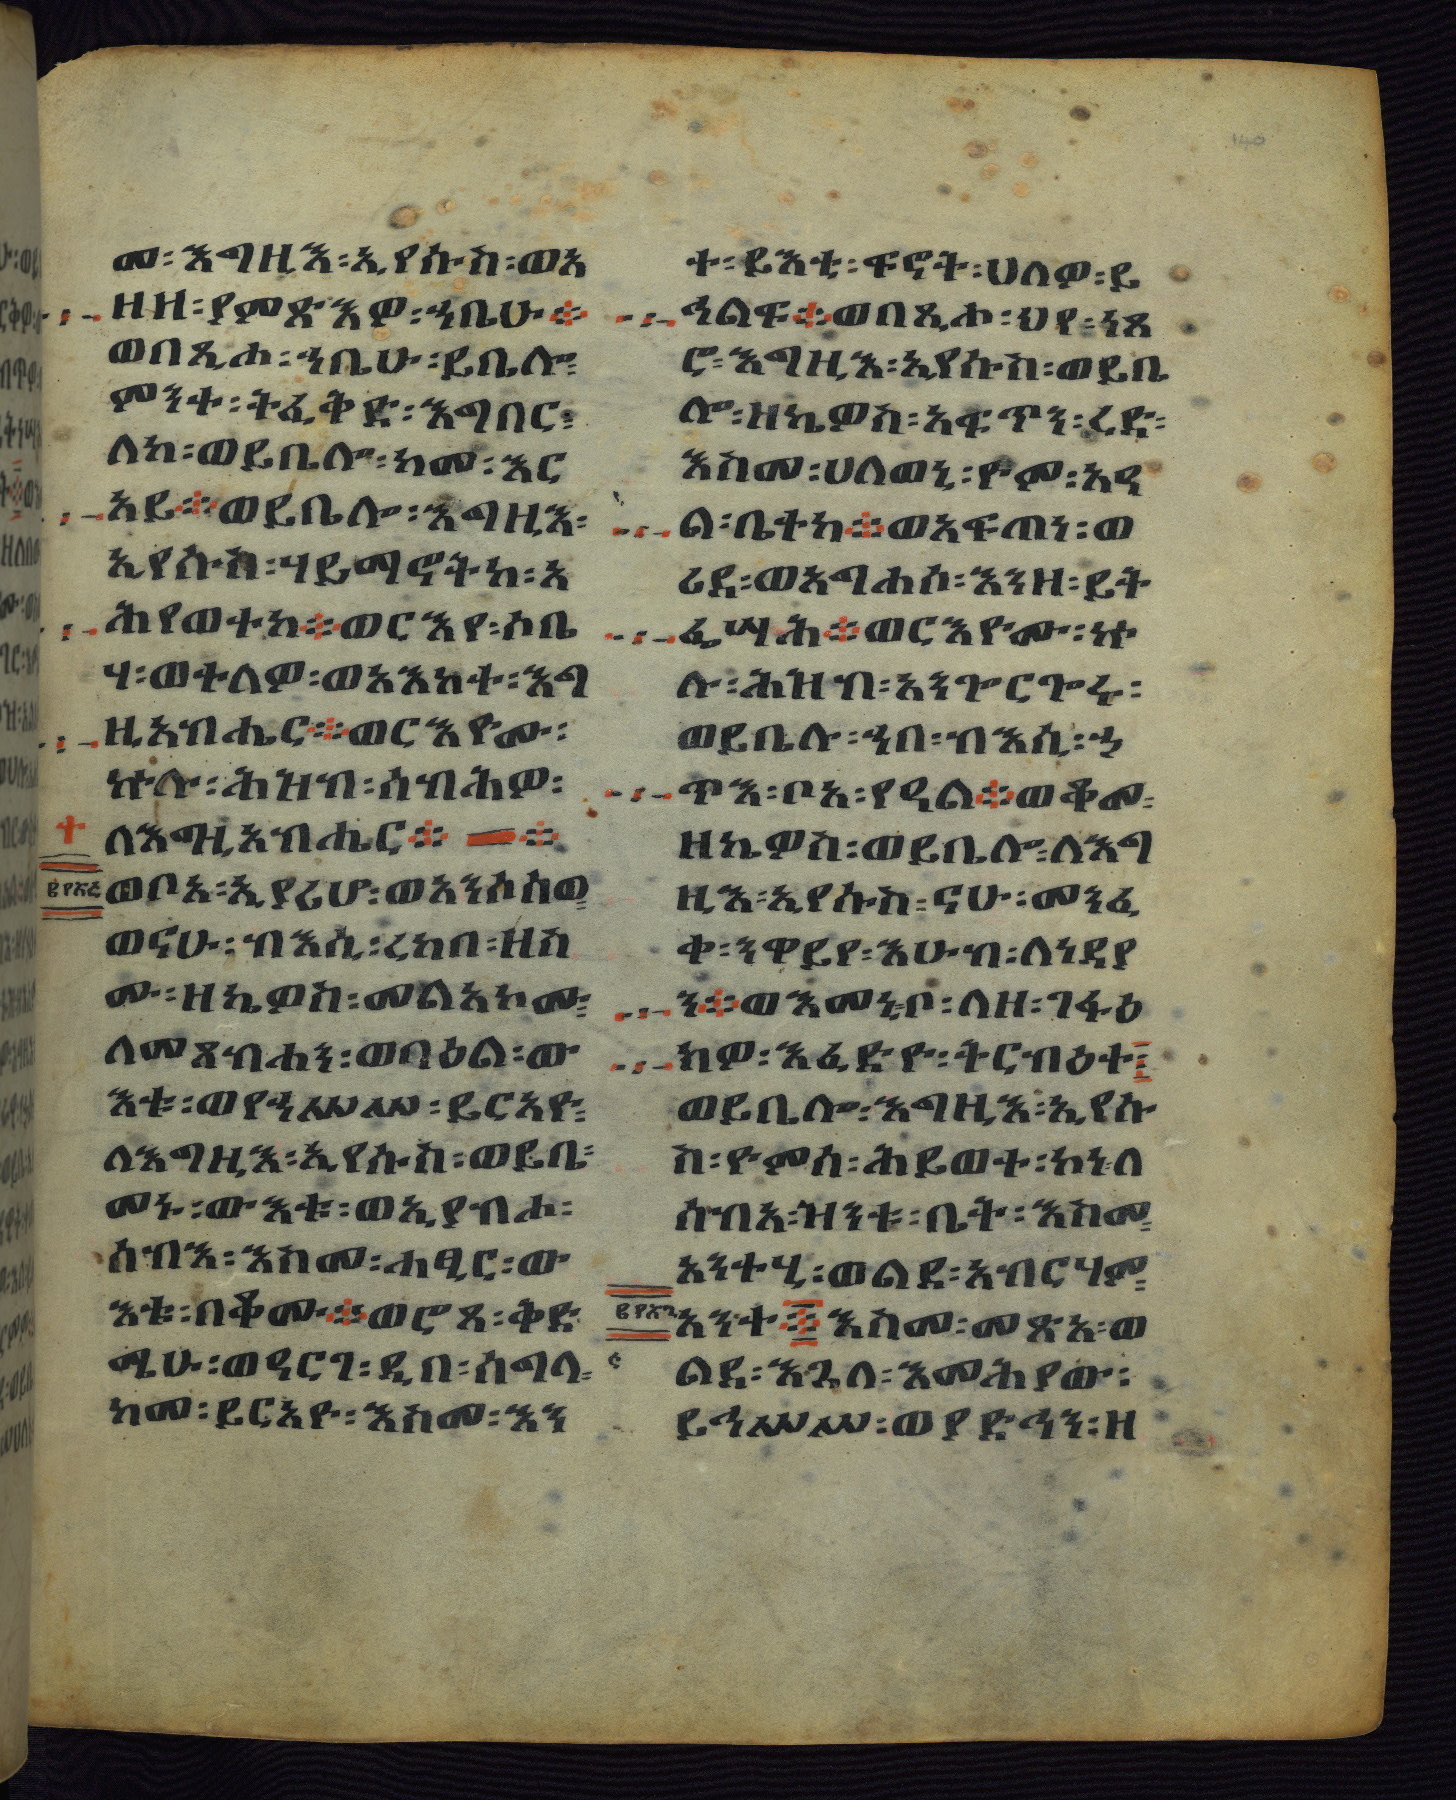 መ፡ እግዚእ፡ ኢየሱስ፡ ወአ
ዘዘ፡ ያምጽእዎ፡ ኀቤሁ፨
ወበጺሖ፡ ኀቤሁ፡ ይቤሎ፡
ምንተ፡ ትፈቅድ፡ እግበር፡
ለከ፡ ወይቤሎ፡ ከመ፡ እር
አይ፨ ወይቤሎ፡ እግዚእ፡
ኢየሱስ፡ ሃይማኖትከ፡ አ
ሕየወተከ፨ ወርእየ፡ ሶቤ
ሃ፡ ወተለዎ፡ ወአእኰተ፡ እግ
ዚአብሔር፨ ወርእዮሙ፡
ኵሉ፡ ሕዝብ፡ ሰብሕዎ፡
ለእግዚአብሔር፨ ፨
ወቦአ፡ ኢያሪሆ፡ ወአንሶሰወ፡
ወናሁ፡ ብእሲ፡ ረከበ፡ ዘስ
ሙ፡ ዘኬዎስ፡ መልአኮሙ፡
ለመጸብሐን፡ ወባዕል፡ ው
እቱ፡ ወየኀሥሥ፡ ይርአዮ፡
ለእግዚእ፡ ኢየሱስ፡ ወይቤ፡
መኑ፡ ውእቱ፡ ወኢያብሖ፡
ሰብእ፡ እስመ፡ ሐፂር፡ ው
እቱ፡ በቆሙ፨ ወሮጸ፡ ቅድ
ሜሁ፡ ወዓርገ፡ ዲበ፡ ሰግላ፡
ከመ፡ ይርአዮ፡ እስመ፡ እን
ተ፡ ይእቲ፡ ፍኖት፡ ሀለዎ፡ ይ
ኅልፍ፨ ወበጺሖ፡ ህየ፡ ነጸ
ሮ፡ እግዚእ፡ ኢየሱስ፡ ወይቤ
ሎ፡ ዘኬዎስ፡ አፍጥን፡ ረድ፡
እስመ፡ ሀለወኒ፡ ዮም፡ እዓ
ል፡ ቤተከ፨ ወአፍጠነ፡ ወ
ረደ፡ ወአግሐሰ፡ እንዘ፡ ይት
ፌሣሕ፨ ወርእዮሙ፡ ኵ
ሉ፡ ሕዝብ፡ አንጐርጐሩ፡
ወይቤሉ፡ ኀበ፡ ብእሲ፡ ኃ
ጥእ፡ ቦአ፡ የዓል፨ ወቆመ፡
ዘኬዎስ፡ ወይቤሎ፡ ለእግ
ዚእ፡ ኢየሱስ፡ ናሁ፡ መንፈ
ቀ፡ ንዋይየ፡ እሁብ፡ ለነዳያ
ን፨ ወእመኒቦ፡ ለዘ፡ ገፋዕ
ክዎ፡ እፈድዮ፡ ትርብዕተ፡
ወይቤሎ፡ እግዚእ፡ ኢየሱ
ስ፡ ዮምሰ፡ ሕይወተ፡ ኮነ፡ ለ
ሰብአ፡ ዝንቱ፡ ቤት፡ እስመ፡
አንተሂ፡ ወልደ፡ አብርሃም፡
አንተ፨ እስመ፡ መጽአ፡ ወ
ልደ፡ እጓለ፡ እመሕያው፡
ይኅሥሥ፡ ወያድኅን፡ ዘ